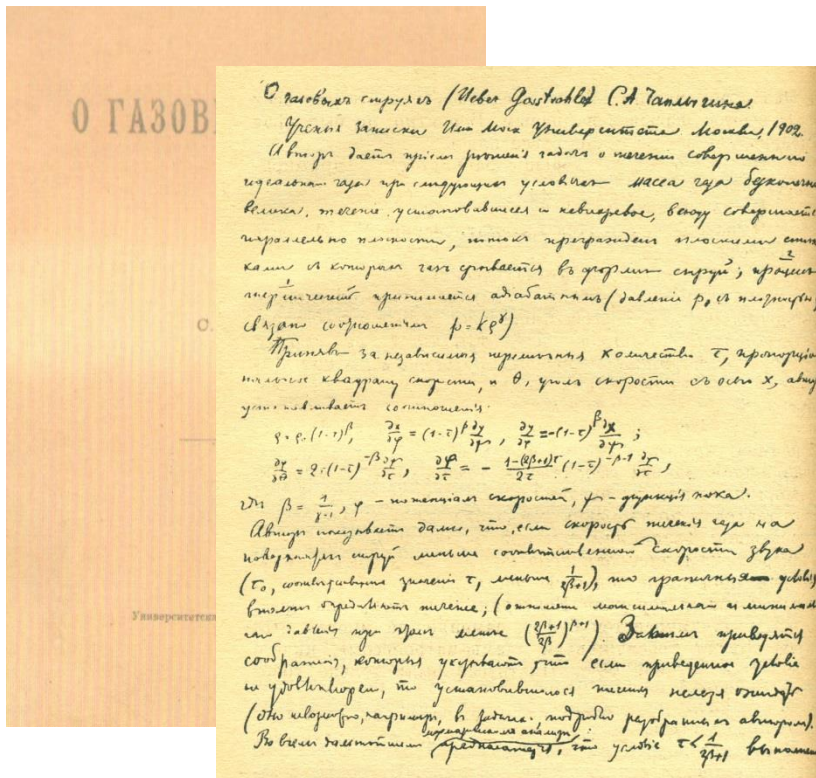 О ГАЗОВ
С.
Университетска
О газовыхъ струяхъ (Ueber Gasstrahlen) С. А. Чаплыгина.
Ученыя Записки Имп Моск Университета Москва, 1902.
Авторъ даетъ пріемъ рѣшенія задачъ о теченіи совершенно
идеальнаго газа при слѣдующихъ условіяхъ масса газа безконечно
велика, теченіе установившееся и невихревое, всюду совершается
параллельно плоскости, потокъ прегражденъ плоскими стѣн-
ками съ которыхъ газъ срывается въ формѣ струй; процессъ
термическій принимается адіабатнымъ (давленіе p, съ плотностью
связано соотношеніемъ p = kρ^γ)
Принявъ за независимыя перемѣнныя количества τ, пропорціо-
нальное квадрату скорости, и θ, уголъ скорости съ осью x, авторъ
устанавливаетъ соотношенія:
ρ = ρ₀(1-τ)^β, ∂x/∂φ = (1-τ)^β ∂y/∂ψ, ∂y/∂φ = -(1-τ)^β ∂x/∂ψ;
∂φ/∂θ = 2τ(1-τ)^-β ∂ψ/∂τ, ∂φ/∂τ = - 1-(2β+1)τ/2τ (1-τ)^-β-1 ∂ψ/∂τ,
гдѣ β = 1/γ-1, φ - потенціалъ скоростей, ψ - функція тока.
Авторъ показываетъ далѣе, что, если скорость теченія газа на
поверхности струй меньше соотвѣтственной скорости звука
(τ₀, соотвѣтственное значеніе τ, меньше 1/2β+1), то граничныя условія
вполнѣ опредѣляютъ теченіе; (отношеніе максимальнаго и минималь-
наго давленія при этомъ менѣе (2β+1/2β)^β+1). Затѣмъ приводятся
соображенія, которыя указываютъ, что если приведенное условіе
не удовлетворено, то установившагося теченія нельзя ожидать
(оно невозможно, напримѣръ, въ задачѣ, подробно разобранной авторомъ).
Во всемъ дальнѣйшемъ предполагается, что условіе τ < 1/2β+1 выполнено